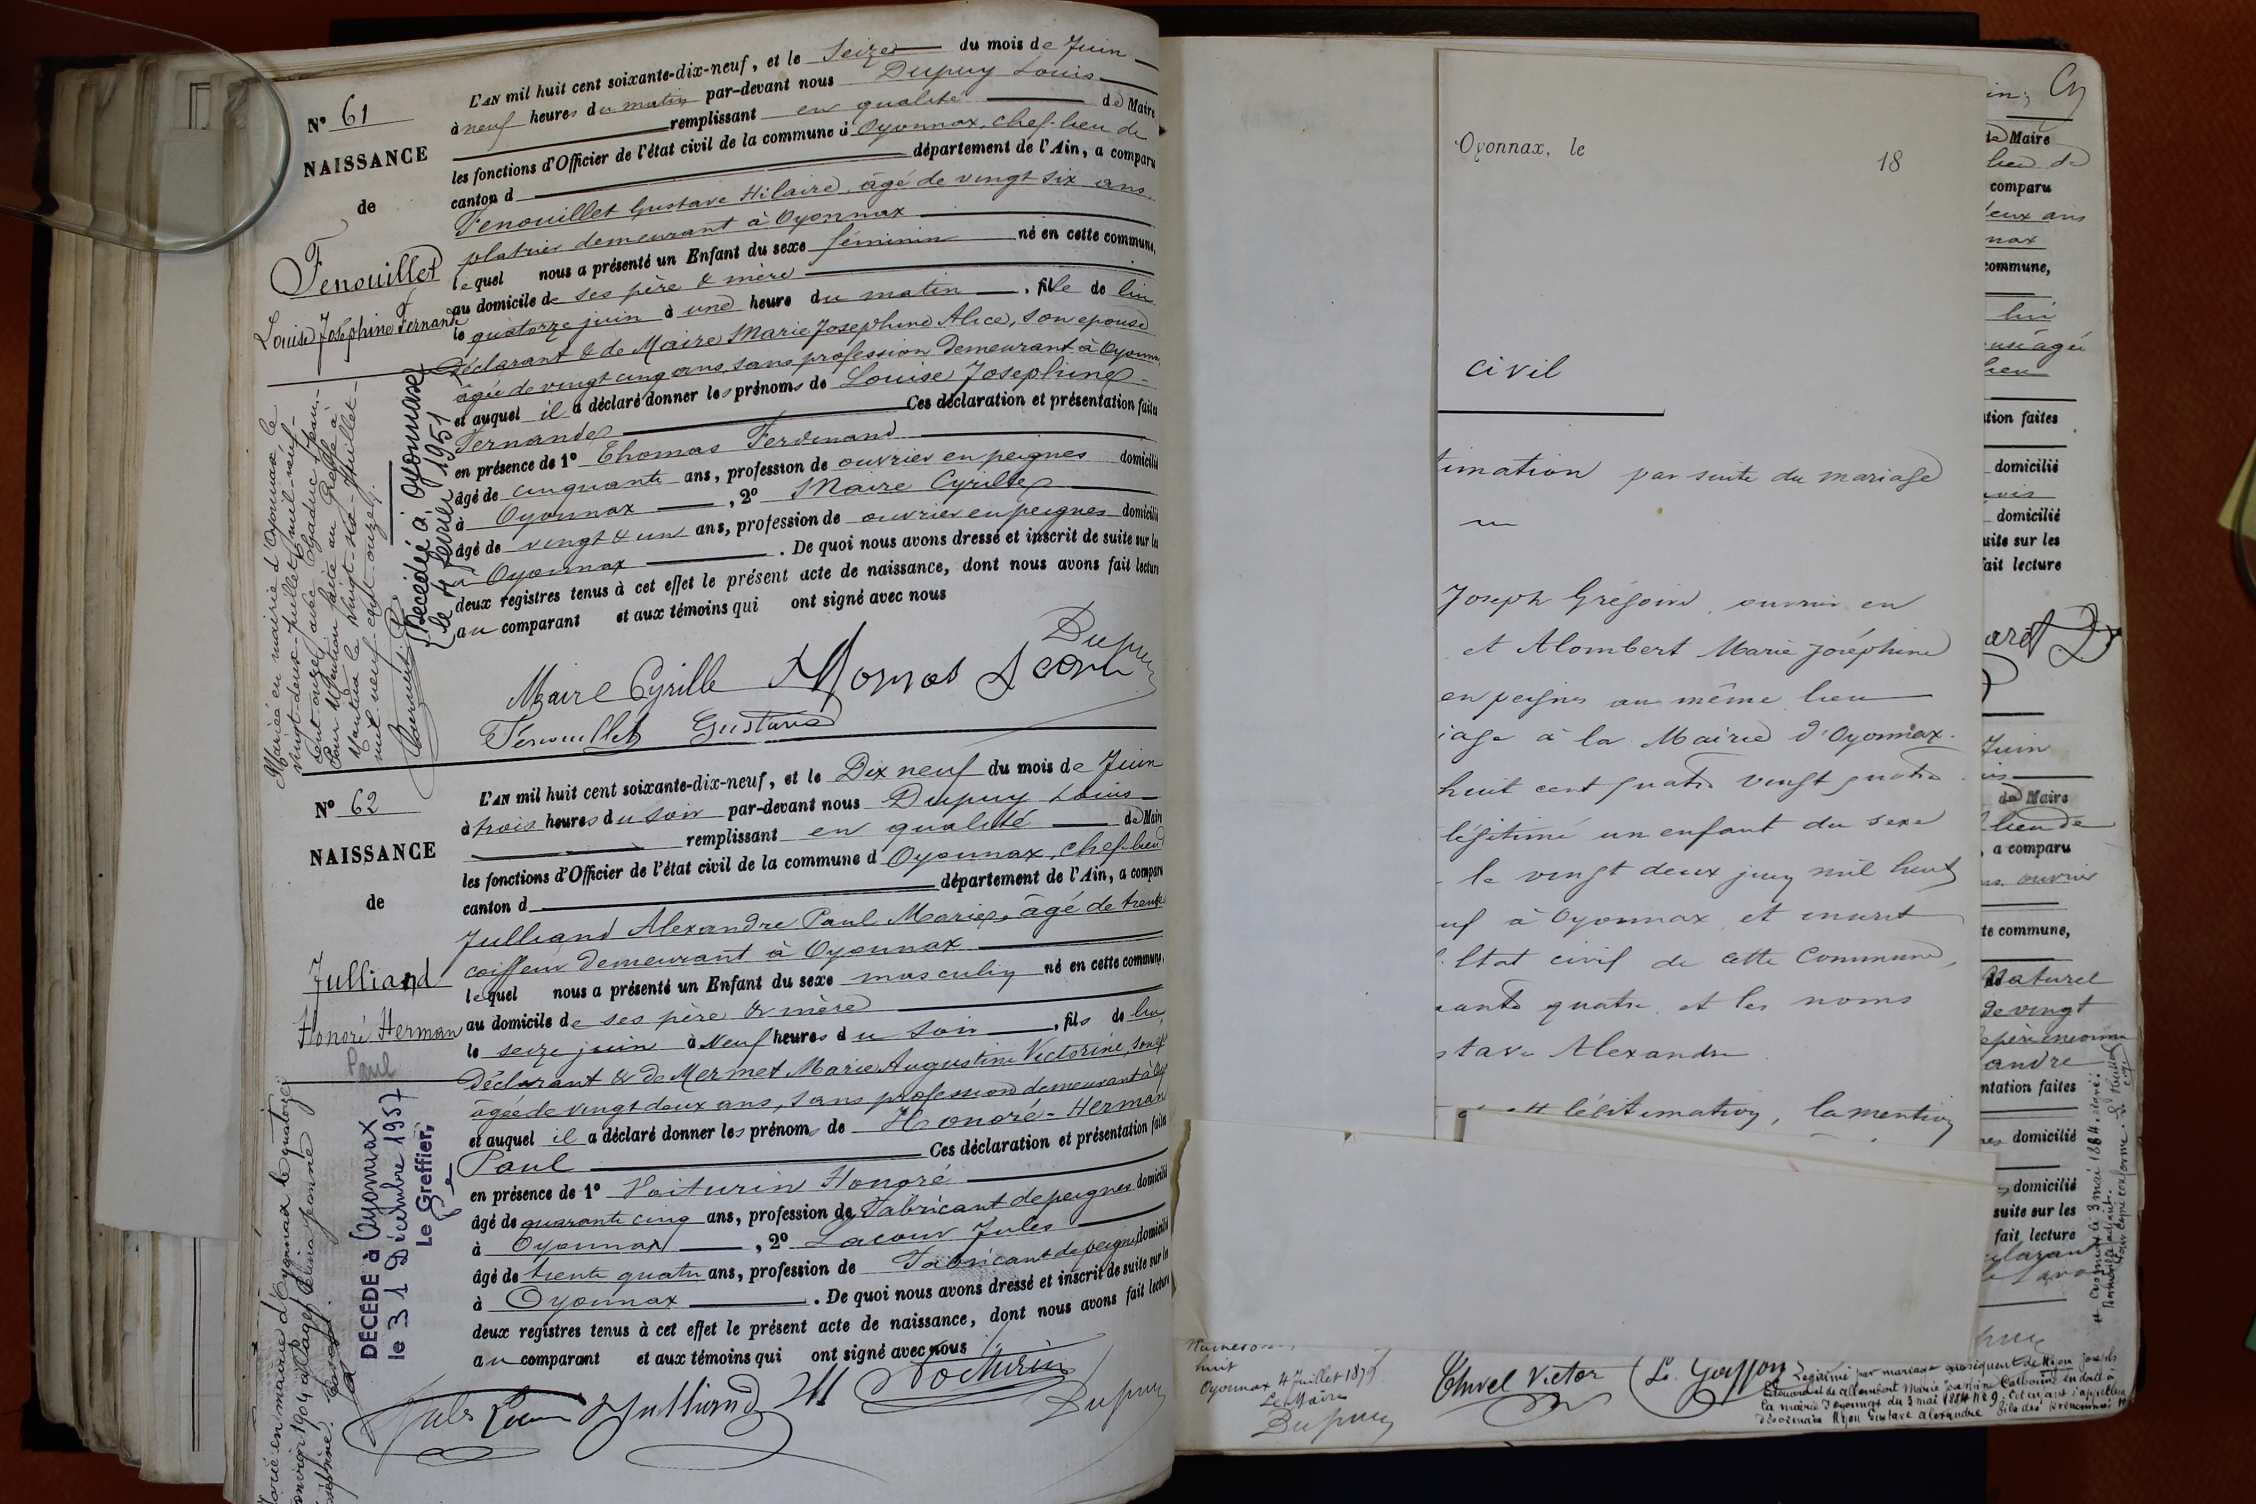 N° 61
NAISSANCE
de
Fenouillet
Louise Joséphine Fernande
L'AN mil huit cent soixante-dix-neuf, et le Seize du mois de Juin
à neuf heures du matin par-devant nous Dupuy Louis
remplissant en qualité de Maire
les fonctions d'Officier de l'état civil de la commune d Oyonnax, chef-lieu de
canton d département de l'Ain, a comparu
Fenouillet Gustave Hilaire, âgé de vingt six ans
platrier demeurant à Oyonnax
lequel nous a présenté un Enfant du sexe féminin né en cette commune,
au domicile de ses père & mère
le quatorze juin à une heure du matin, fille de lui
déclarant & de Maire Marie Josephine Alice, son épouse
âgée de vingt cinq ans, sans profession demeurant à Oyonn
et auquel il a déclaré donner les prénoms de Louise Josephine
Fernande Ces déclaration et présentation faites
en présence de 1° Thomas Ferdinand
âgé de cinquante ans, profession de ouvrier en peignes domicilié
à Oyonnax, 2° Maire Cyrille
âgé de vingt & un ans, profession de ouvrier en peignes domicilié
à Oyonnax. De quoi nous avons dressé et inscrit de suite sur les
deux registres tenus à cet effet le présent acte de naissance, dont nous avons fait lecture
au comparant et aux témoins qui ont signé avec nous
Dupuy
Maire Cyrille
Fenouillet Gustave
Mariée en mairie d'Oyonnax le
vingt-deux juillet mil neuf
cent onze avec
Pour Mention faite au Greffe à
Nantua le vingt-six Juillet
mil neuf cent onze
Décédée à Oyonnax
le 4 février 1951
N° 62
NAISSANCE
de
Julliand
Honoré Herman
Paul
L'AN mil huit cent soixante-dix-neuf, et le Dix neuf du mois de Juin
à trois heures du soir par-devant nous Dupuy Louis
remplissant en qualité de Maire
les fonctions d'Officier de l'état civil de la commune d Oyonnax, chef-lieu
canton d département de l'Ain, a comparu
Julliand Alexandre Paul Marie, âgé de trente
coiffeur demeurant à Oyonnax
lequel nous a présenté un Enfant du sexe masculin né en cette commune,
au domicile de ses père & mère
le seize juin à Neuf heures du soir, fils de lui
déclarant & de Mermet Marie Augustine Victorine, son
âgée de vingt deux ans, sans profession demeurant à Oy
et auquel il a déclaré donner les prénoms de Honoré-Herman
Paul Ces déclaration et présentation faites
en présence de 1° Voiturin Honoré
âgé de quarante cinq ans, profession de Fabricant de peignes domicilié
à Oyonnax, 2° Lacour Jules
âgé de trente quatre ans, profession de Fabricant de peignes domicilié
à Oyonnax. De quoi nous avons dressé et inscrit de suite sur les
deux registres tenus à cet effet le présent acte de naissance, dont nous avons fait lecture
au comparant et aux témoins qui ont signé avec nous
Julliand
Dupuy
Marié en mairie d'Oyonnax le quatorze
janvier 1904
DÉCÉDÉ à Oyonnax
le 31 Décembre 1957
Le Greffier,
Oyonnax, le 18
civil
timation par suite du mariage
Joseph Grégoire, ouvrier en
et Alombert Marie Joséphine
en peignes au même lieu
iage à la Mairie d'Oyonnax
huit cent quatre vingt quatre
légitimé un enfant du sexe
le vingt deux juin mil huit
uf à Oyonnax et inscrit
l'Etat civil de cette Commune,
ante quatre et les noms
stave Alexandre
légitimation, la mention
de Maire
lieu de
comparu
deux ans
nax
commune,
lui
âgée
lieu
tion faites
domicilié
domicilié
uite sur les
fait lecture
Juin
de Maire
lieu de
, a comparu
ouvrier
te commune,
Naturel
de vingt
père inconnu
andre
ntation faites
domicilié
domicilié
suite sur les
fait lecture
huit
Oyonnax 4 Juillet 1879
Le Maire
Dupuy
Thivel Victor
Légitimé par mariage subséquent de Nyon Joseph
la mairie d'Oyonnax du 3 mai 1884 N° 9. Cet enfant s'appellera
désormais Nyon Gustave Alexandre fils des prénommés
Oyonnax le 3 mai 1884. signé:
Pour copie conforme.